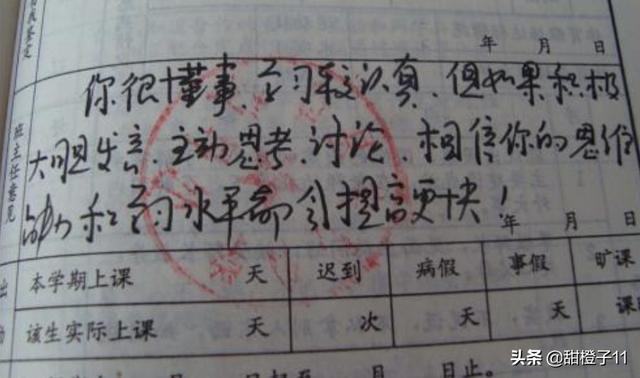 我鉴定
年 月 日
班主任意见
你很懂事、学习较认真、但如果积极
大胆发言、主动思考、讨论、相信你的思维
能力和 水平都会提高更快!
年 月 日
本学期上课 天 迟到 病假 事假 旷课
该生实际上课 天 次 天 天 课
日止。
头条 @甜橙子11